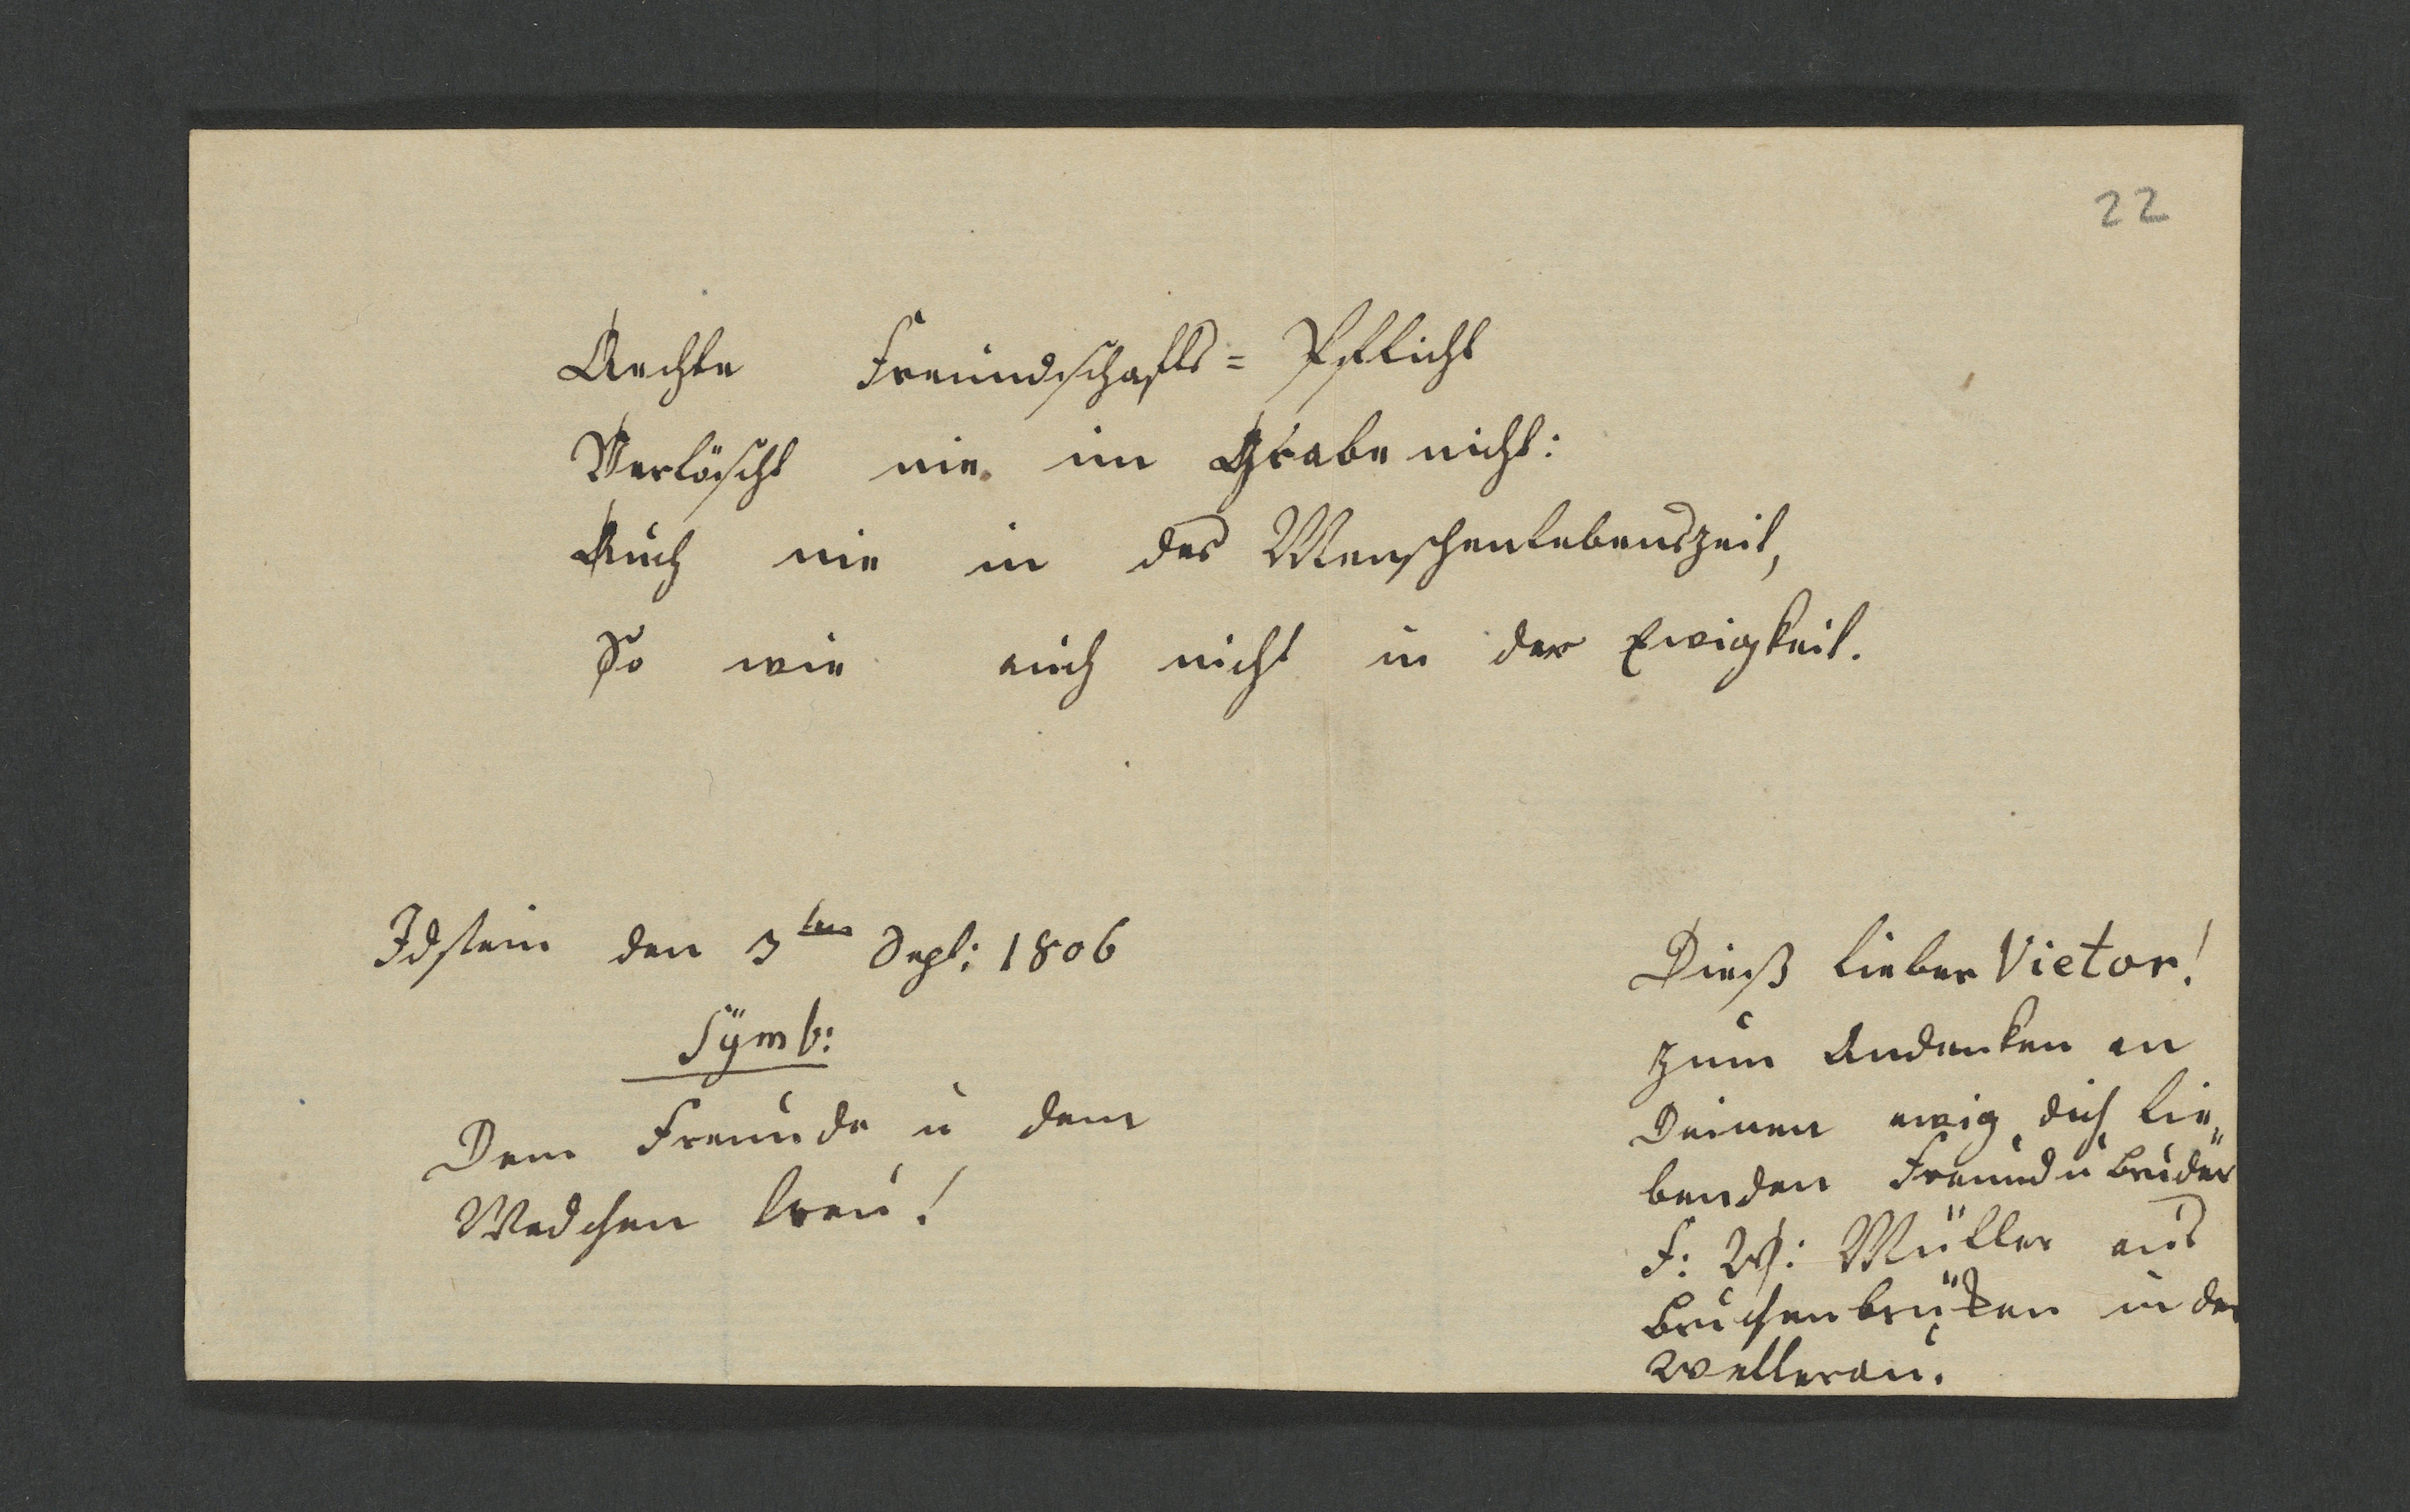 22
Aechte Freundschafts= Pflicht
Verlöscht nie im Grabe nicht:
Auch nie in des Menschenlebenszeit,
So wie auch nicht in der Ewigkeit.
Idstein den 3ten Sept: 1806
Sÿmb:
Dem Freunde u dem
Medchen treu!
Dieß lieber Vietor!
zum Andenken an
Deinen ewig dich lie„
benden Freund u Bruder
F: W: Müller aus
Bruchenbrüken in der
Wetterau.